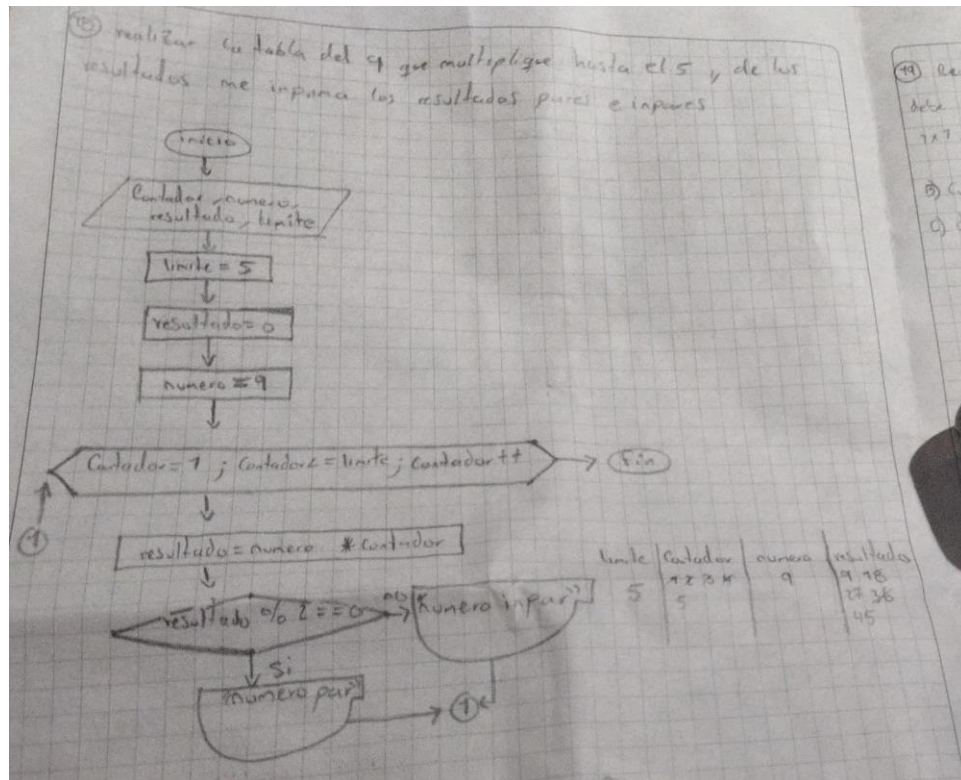 realizar la tabla del 9 que multiplique hasta el 5 y de los
resultados me inprima los resultados pares e inpares
inicio
Contador, numero,
resultado, limite
limite = 5
resultado = 0
numero = 9
Contador = 1 ; Contador <= limite ; contador ++
Fin
1
resultado = numero * contador
resultado % 2 == 0
no
"numero inpar"
si
"numero par"
1
limite | Contador | numero | resultado
5 | 1 2 3 4 | 9 | 9 18
5 | 27 36
45
19
debe
B)
C)